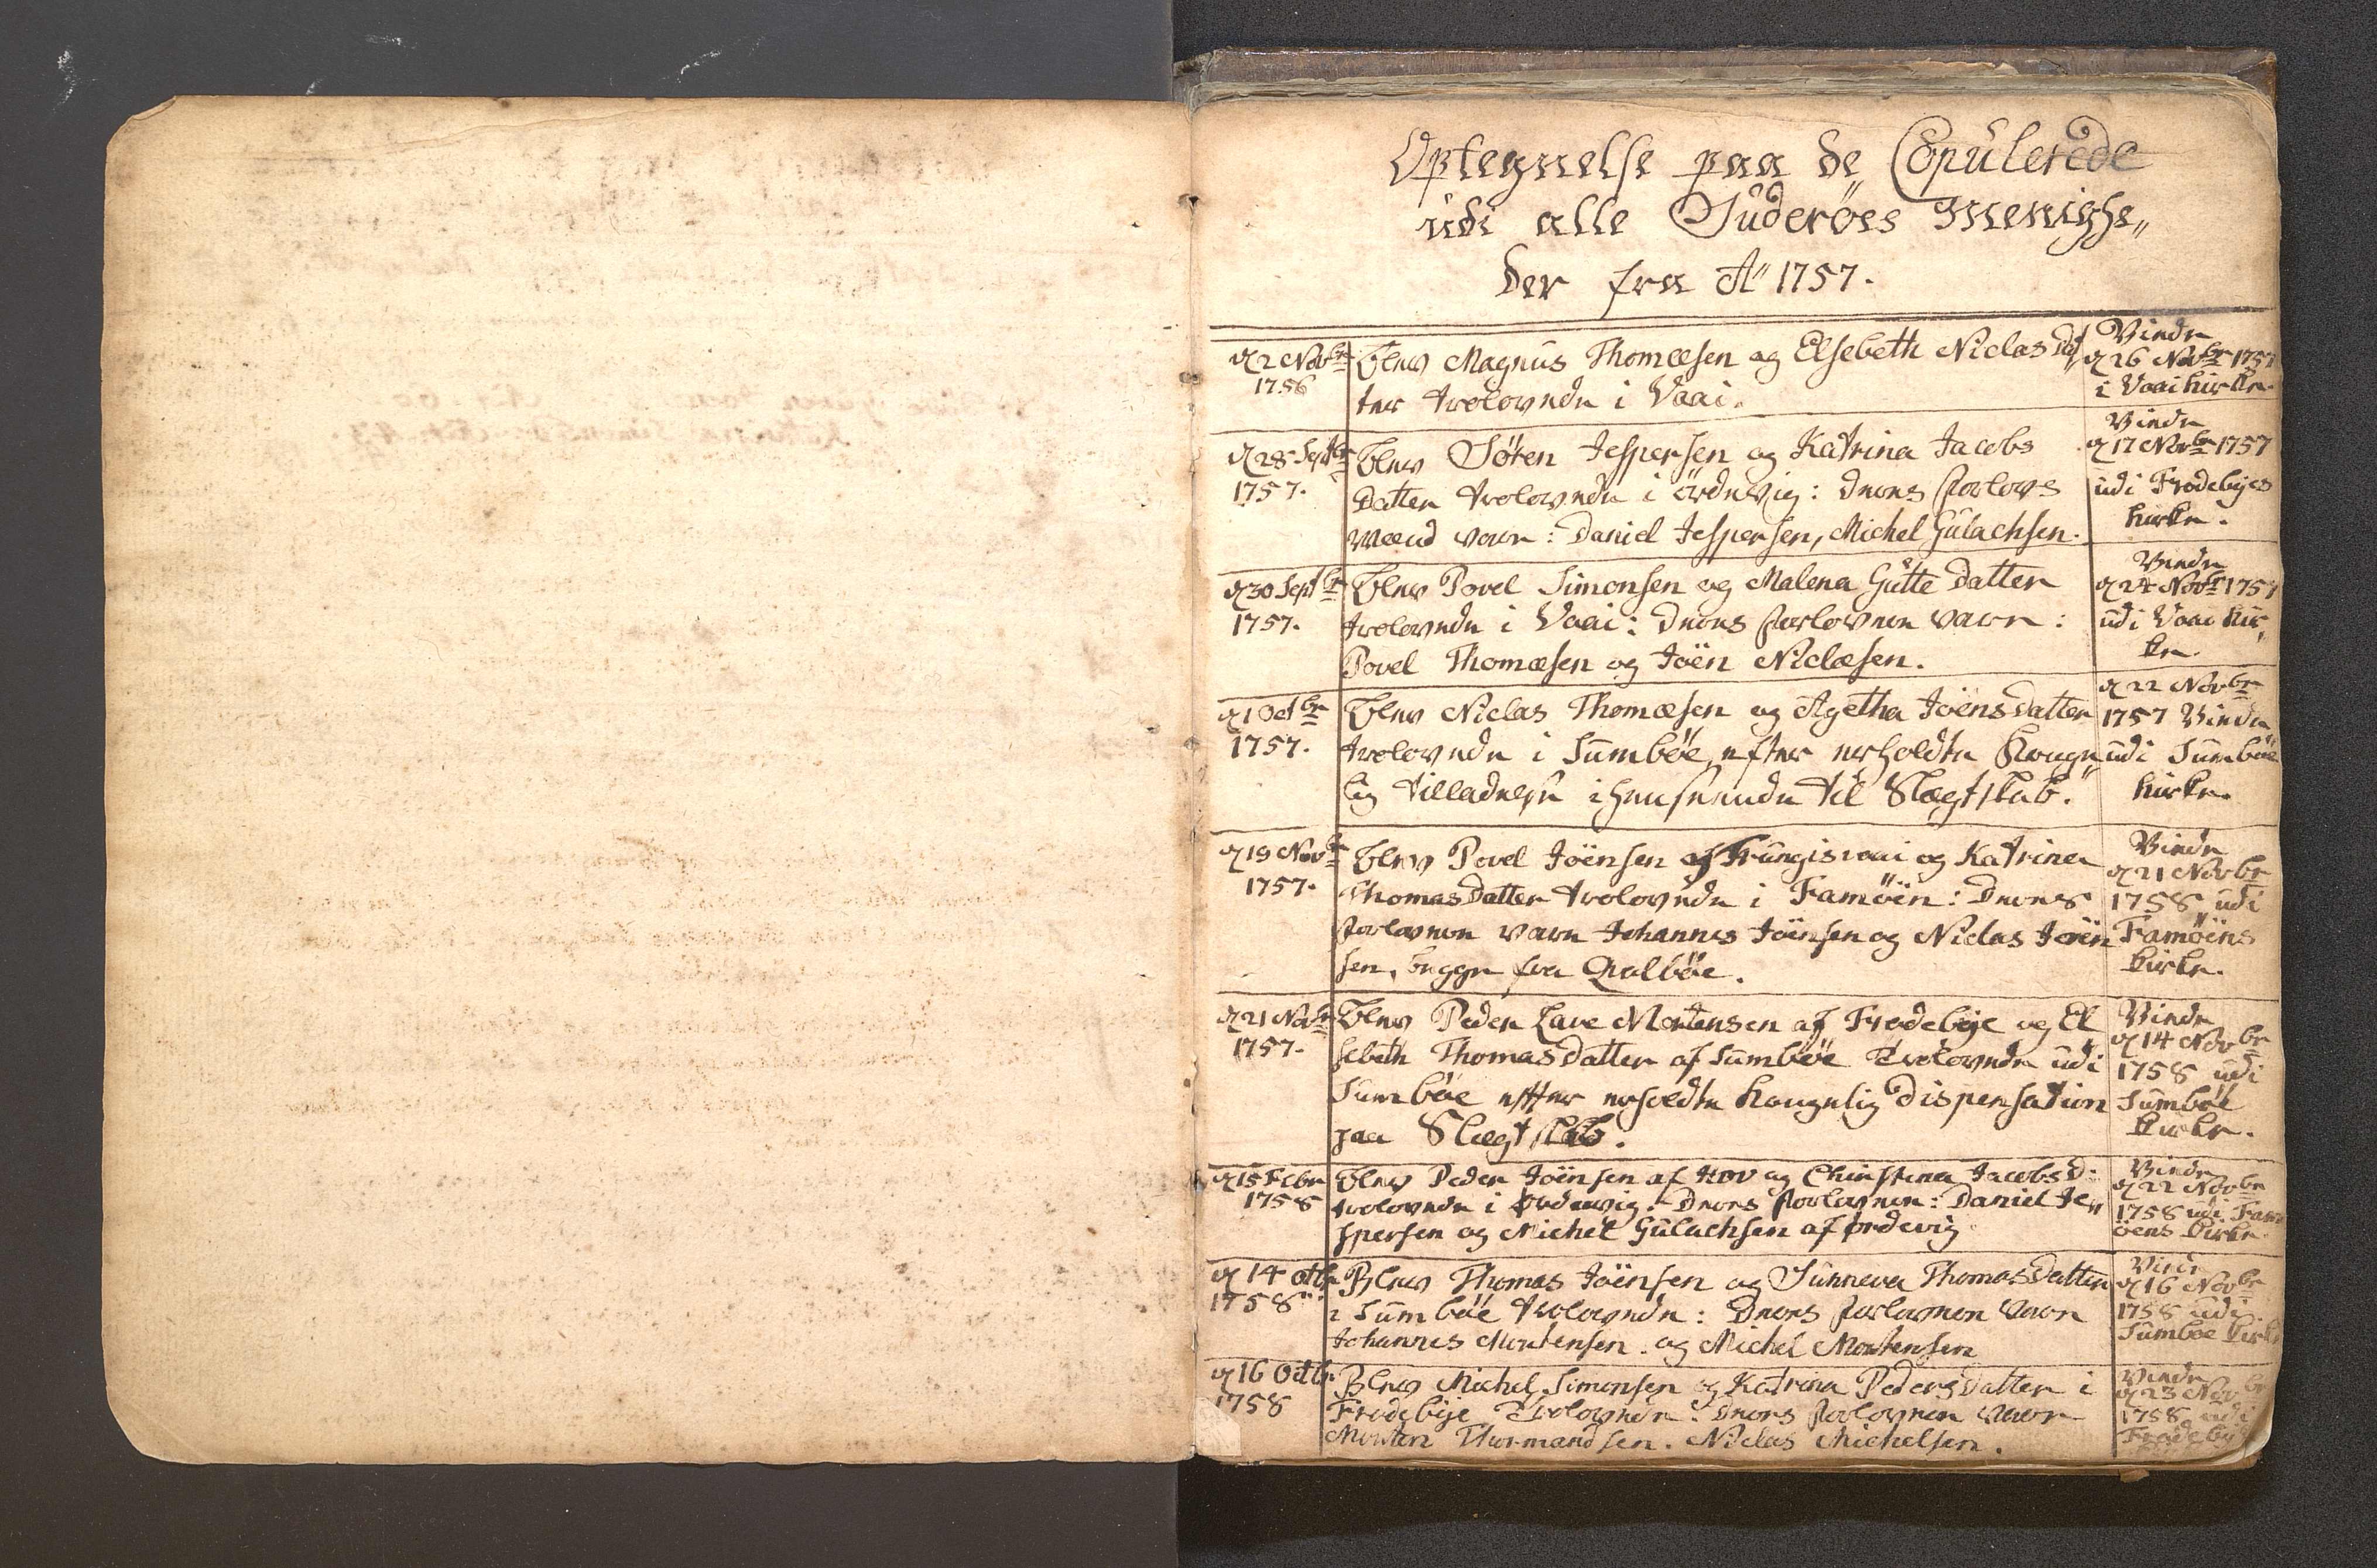 Optegnelse paa de Copulerede
udi alle Suderöes Menighe„
der fra Aº 1757.
d 2 Novbr
1756
Blev Magnus Thomæsen og Elsebeth Niclas Dat„
ter trolovede i Vaai.
Viede
d 26 Novbr 1757
i Vaai kirke.
d 28 Septbr
1757.
Blev Sören Jespersen og Katrina Jacobs
Datter trolovede i ördevig: Deres forlovs
Mænd vare: Daniel Jespersen, Michel Gulachsen.
Viede
d 17 Novbr 1757
udi Frodebijes
kirke.
d 30 Septbr
1757.
Blev Povel Simonsen og Malena Gutte Datter
trolovede i Vaai: Deres forlovere vare:
Povel Thomæsen og Joën Niclæsen.
Viede
d 24 Novbr 1757
udi Vaai kir„
ke.
d 1 Octbr
1757.
Blev Niclas Thomæsen og Agetha Joëns Datter
trolovede i Sumböe, efter erholdte Konge„
lig tilladelse i henseende til Slægtskab.
d 22 Novbr
1757 Viede
udi Sumböe
kirke.
d 19 Novbr
1757.
Blev Povel Joënsen af Frangisvaai og Katrina
Thomas Datter trolovede i Famöien: Deres
forlovere vare Johannes Joënsen og Niclas Joën
sen, begge fra Qualböe.
Viede
d 21 Novbr
1758 udi
Famöiens
kirke.
d 21 Novbr
1757.
Blev Peder Lave Mortensen af Frodebije og El
sebeth Thomas Datter af Sumböe Trolovede udi
Sumböe efter erholdte kongelig Dispensation
paa Slægtskab.
Viede
d 14 Novbr
1758 udi
Sumböe
kirke.
d 15 Febr
1758
Blev Peder Joënsen af Hov og Christina Jacobs D:
trolovede i ördevig. Deres forlovere: Daniel Je„
spersen og Michel Gulachsen af ördevig
Viede
d 22 Novbr
1758 udi Fam
öens kirke.
d 14 octbr
1758
Blev Thomas Joënsen og Sunneva Thomas Datter
i Sumböe trolovede: Deres forlovere vare
Johannes Mortensen og Michel Mortensen
Viede
d 16 Novbr
1758 udi
Sumböe kirke
d 16 Octbr
1758
Blev Michel Simonsen og Katrina Peders Datter i
Frodebije Trolovede: Deres forlovere vare
Morten Thormandsen. Niclas Michelsen.
Viede
d 23 Novbr
1758 udi
Frodebij